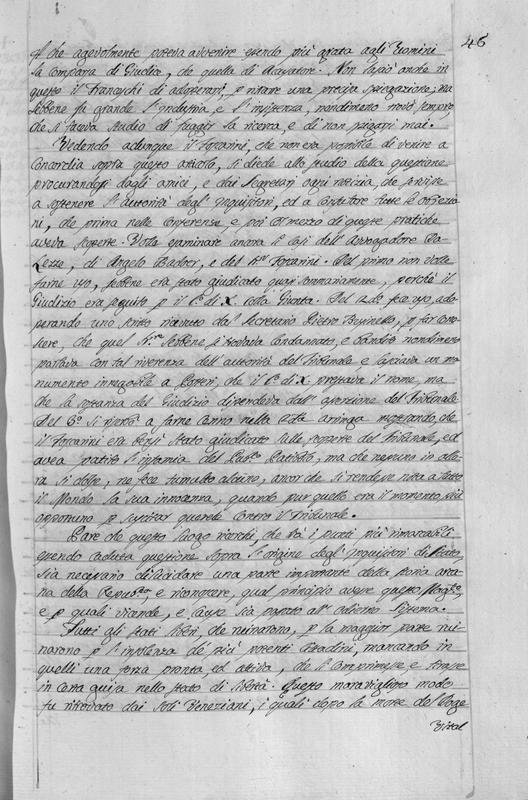 46
il che agevolmente poteva avvenire essendo più grata agli Uomini
la comparsa di Giudice, che quella di Accusatore. Non lasciò anche in
questo il Franceschi di adoperarsi, p vitare una precisa spiegazione, ma
sebbene fu grande l'industria, e l'insistenza, nondimeno trovò sempre,
che si faceva studio di fuggir la ricerca, e di non spiegarsi mai.
Vedendo adunque il Foscarini, che non era possibile di venire a
Concordia sopra questo articolo, si diede allo studio della questione
procurandosi dagli amici, e dai Secretarj ogni notizia, che servisse
a sostenere l'autorità degl'Inquisitori, ed a confutare tutte le obbiezio
ni, che prima nelle conferenze, e poi col mezzo di queste pratiche
aveva scoperte. Volle esaminare ancora i casi dell'Avvogadore Da
Lezze, di Angelo Badoer, e del Kr Foscarini. Del primo non volle
farne uso, sebbene era stato giudicato quasi sommariamente, perchè il
Giudizio era seguito p il C. di X. colla Giunta. Del 2do fece uso, ado
perando uno scritto ricevuto dal Secretario Pietro Businello, p far cono
scere, che quel sebbene si trovava condannato, e bandito nondimeno
parlava con tal riverenza dell'autorità del Tribunale e lasciava un mo
numento innegabile a Posteri, che il C. di X. prestava il nome, ma
che la sostanza del Giudizio dipendeva dall'opinione del Tribunale
Del 3o si riservò a farne cenno nella arringa mostrando, che
il Foscarini era bensì stato giudicato sulle del Tribunale, ed
avea patito l'infamia del Pub.co Patibolo, ma che nessuno in allo
ra si dolse, ne fece tumulto alcuno, ancor che si rendesse nota a tutto
il Mondo la sua innocenza, quando pur quello era il momento più
opportuno p suscitar querele contro il Tribunale.
Pare che questo luogo ricerchi, che tra i punti più rimarcabili
essendo caduta questione sopra l'origine degl'Inquisitori di Stato
sia necessario dilucidare una parte importante della storia arca
na della Repub.ca e riconoscere, qual principio avesse questo Magis.to,
e p quali vicende, e cause sia passato all'odierno sistema.
Tutti gli stati liberi che ruinarono, p la maggior parte rui
narono p l'insolenza de' più potenti Cittadini, mancando in
quelli una forza pronta, ed attiva, che l'comprimesse e tenesse
in certa guisa nello stato di libertà. Questo maraviglioso modo
fu ritrovato dai soli Veneziani, i quali dopo la morte del Doge
Vital